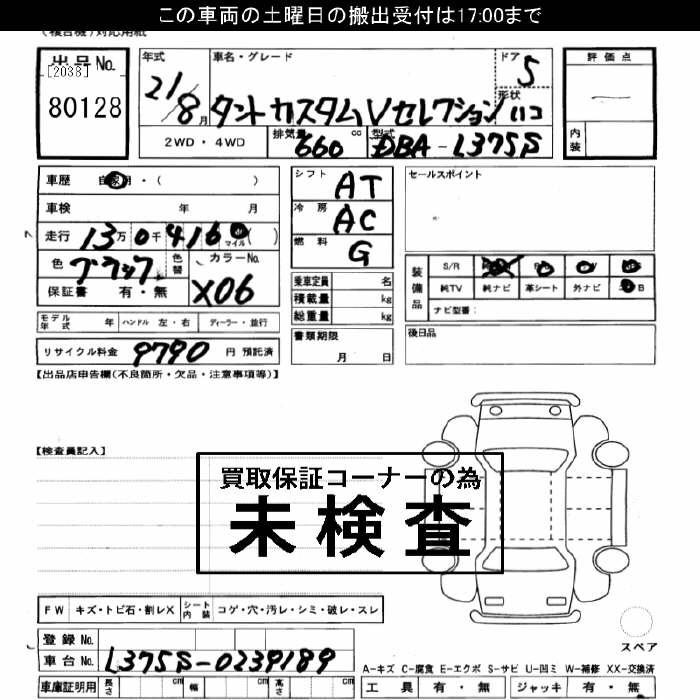 この車両の土曜日の搬出受付は17:00まで
(複合機)対応用紙
出品No. [2038] 80128
年式 21/8月
車名・グレード タント カスタム Vセレクション
ドア 5
形状 ハコ
評価点 —
内装
2WD・4WD 排気量 660 cc 型式 DBA-L375S
車歴 自家用・( )
シフト AT
セールスポイント
車検 年 月
冷房 AC
走行 13万0千416 マイル( )
燃料 G
色 ブラック 色替 カラーNo. X06
保証書 有・無
乗車定員 名
積載量 kg
総重量 kg
装備品 S/R
純TV 純ナビ 革シート 外ナビ B
ナビ型番:
モデル年式 年 ハンドル 左・右 ディーラー・並行
書類期限 月 日
後日品
リサイクル料金 9790 円 預託済
【出品店申告欄(不良箇所・欠品・注意事項等)】
【検査員記入】
買取保証コーナーの為
未検査
FW キズ・トビ石・割レX シート内装 コゲ・穴・汚レ・シミ・破レ・スレ
スペア
登録No.
車台No. L375S-0239189
A-キズ C-腐食 E-エクボ S-サビ U-凹ミ W-補修 XX-交換済
車庫証明用 長さ cm 幅 cm 高さ cm
工具 有・無 ジャッキ 有・無